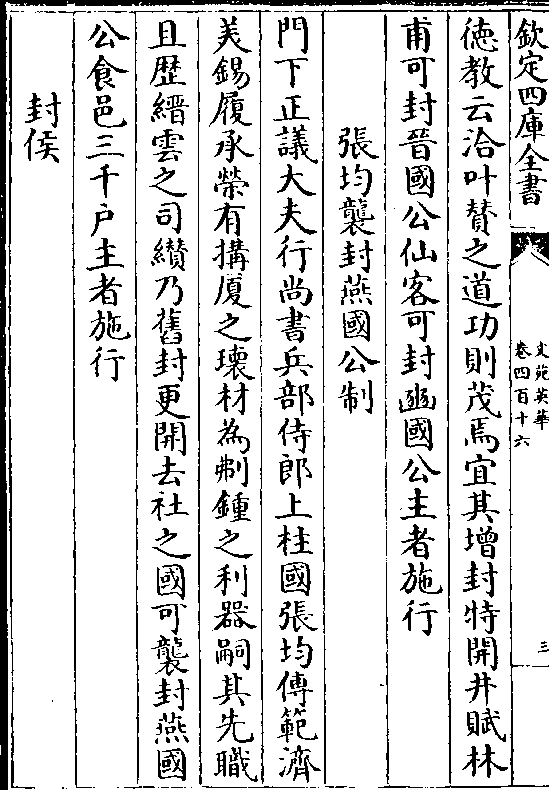 欽定四庫全書
文苑英華
卷四百十六
三
徳教云洽叶賛之道功則茂焉宜其增封特開井賦林
甫可封晉國公仙客可封豳國公主者施行
張均襲封燕國公制
門下正議大夫行尚書兵部侍郎上柱國張均傳範濟
美錫履承榮有搆厦之瓌材為剸鍾之利器嗣其先職
且歴縉雲之司纉乃舊封更開去社之國可襲封燕國
公食邑三千户主者施行
封侯